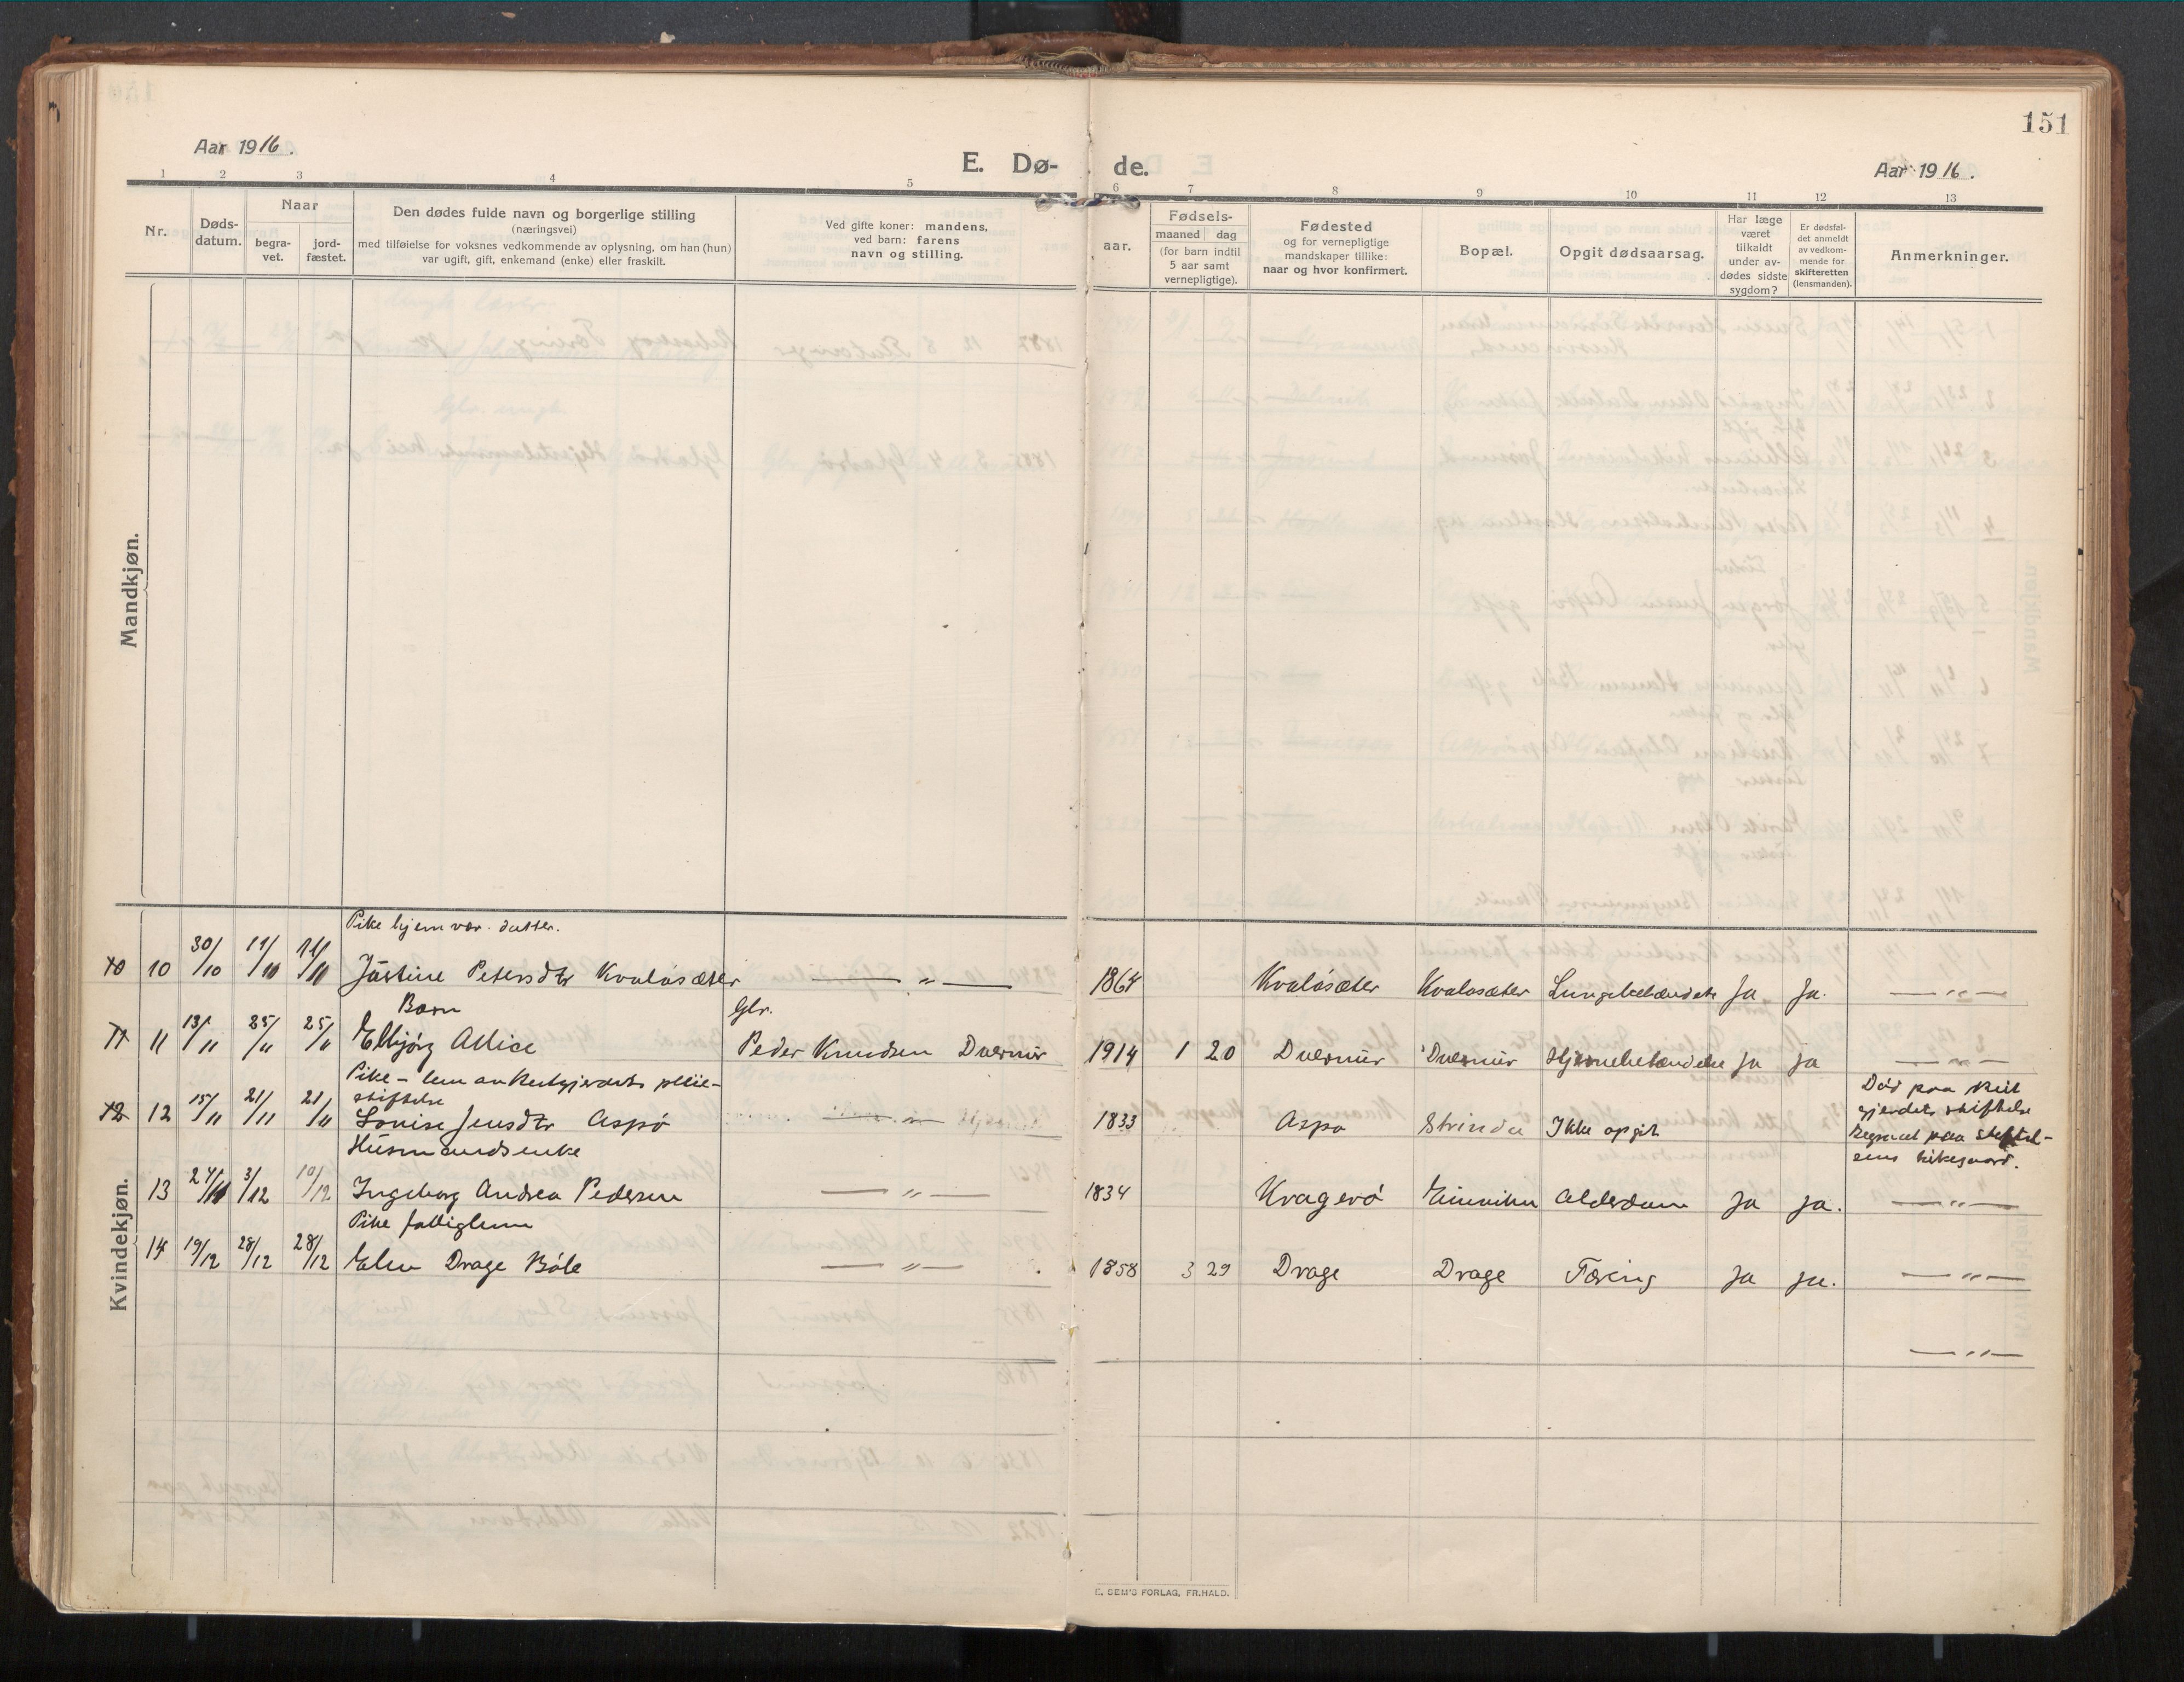 151
Aar 1916.
E. Dø-
de.
Aar 1916.
1 2 3 4 5 6 7 8 9 10 11 12 13
Nr.
Døds-
datum.
Naar
begra-
vet.
jord-
fæstet.
Den dødes fulde navn og borgerlige stilling
(næringsvei)
med tilføielse for voksnes vedkommende av oplysning, om han (hun)
var ugift, gift, enkemand (enke) eller fraskilt.
Ved gifte koner: mandens,
ved barn: farens
navn og stilling.
aar.
Fødsels-
maaned dag
(for barn indtil
5 aar samt
vernepligtige).
Fødested
og for vernepligtige
mandskaper tillike:
naar og hvor konfirmert.
Bopæl.
Opgit dødsaarsag.
Har læge
været
tilkaldt
under av-
dødes sidste
sygdom?
Er dødsfal-
det anmeldt
av vedkom-
mende for
skifteretten
(lensmanden).
Anmerkninger.
Mandkjøn.
Kvindekjøn.
Pike hjemvær. datter.
10 10 30/10 11/10 Justine Petersdtr Kvaløsæter — " — 1864 Kvaløsæter Kvaløsæter Lungebetændelse Ja Ja. — " —
Barn Gbr.
11 11 13/11 25/11 25/11 Elbjørg Allice Peder Knudsen 1914 1 20 Hjernebetændelse Ja Ja — " —
Pike - lem av Reitgjerdets pleie-
stiftelse
12 12 15/11 21/11 21/11 Louise Jensdtr Aspø — " — 1833 Aspø Strinda Ikke opgit
Død paa Reit
gjerdets stiftelse
Begravet paa stiftel-
sens kirkegaard.
Husmandsenke
13 3/12 10/12 Ingeborg Andrea Pedersen — " — 1834 Kvagerø Alderdom Ja Ja. — " —
Pike fattiglem
14 19/12 28/12 28/12 Elen Drage Bøle — " — 1858 3 29 Drage Drage Tæring Ja Ja. — " —
— " —
E. SEM'S FORLAG, FR.HALD.